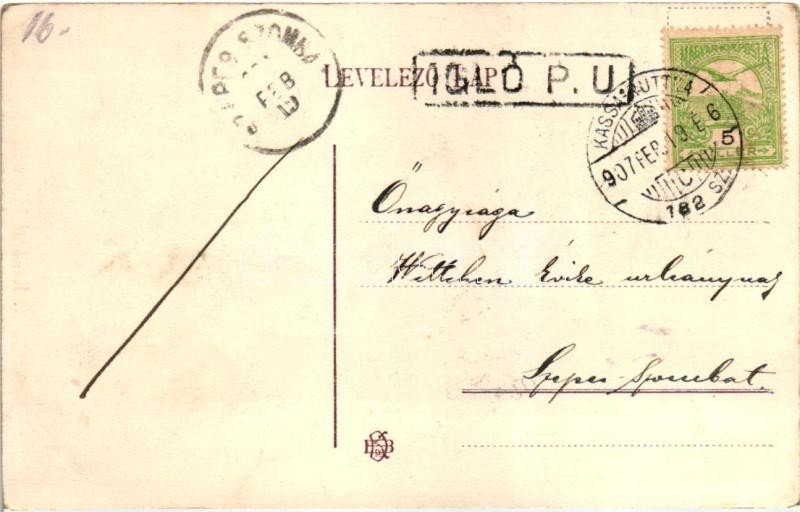 16.-
SZEPES SZOMBA
FEB
LEVELEZŐ LAP
IGLÓ P. U.
MAGYAR KIR. POSTA
5
KASSA-RUTTKA
907 FEB. 19 E 6
182 SZ
Őnagysága
Wittchen Évike urleánynak
Szepes Szombat.